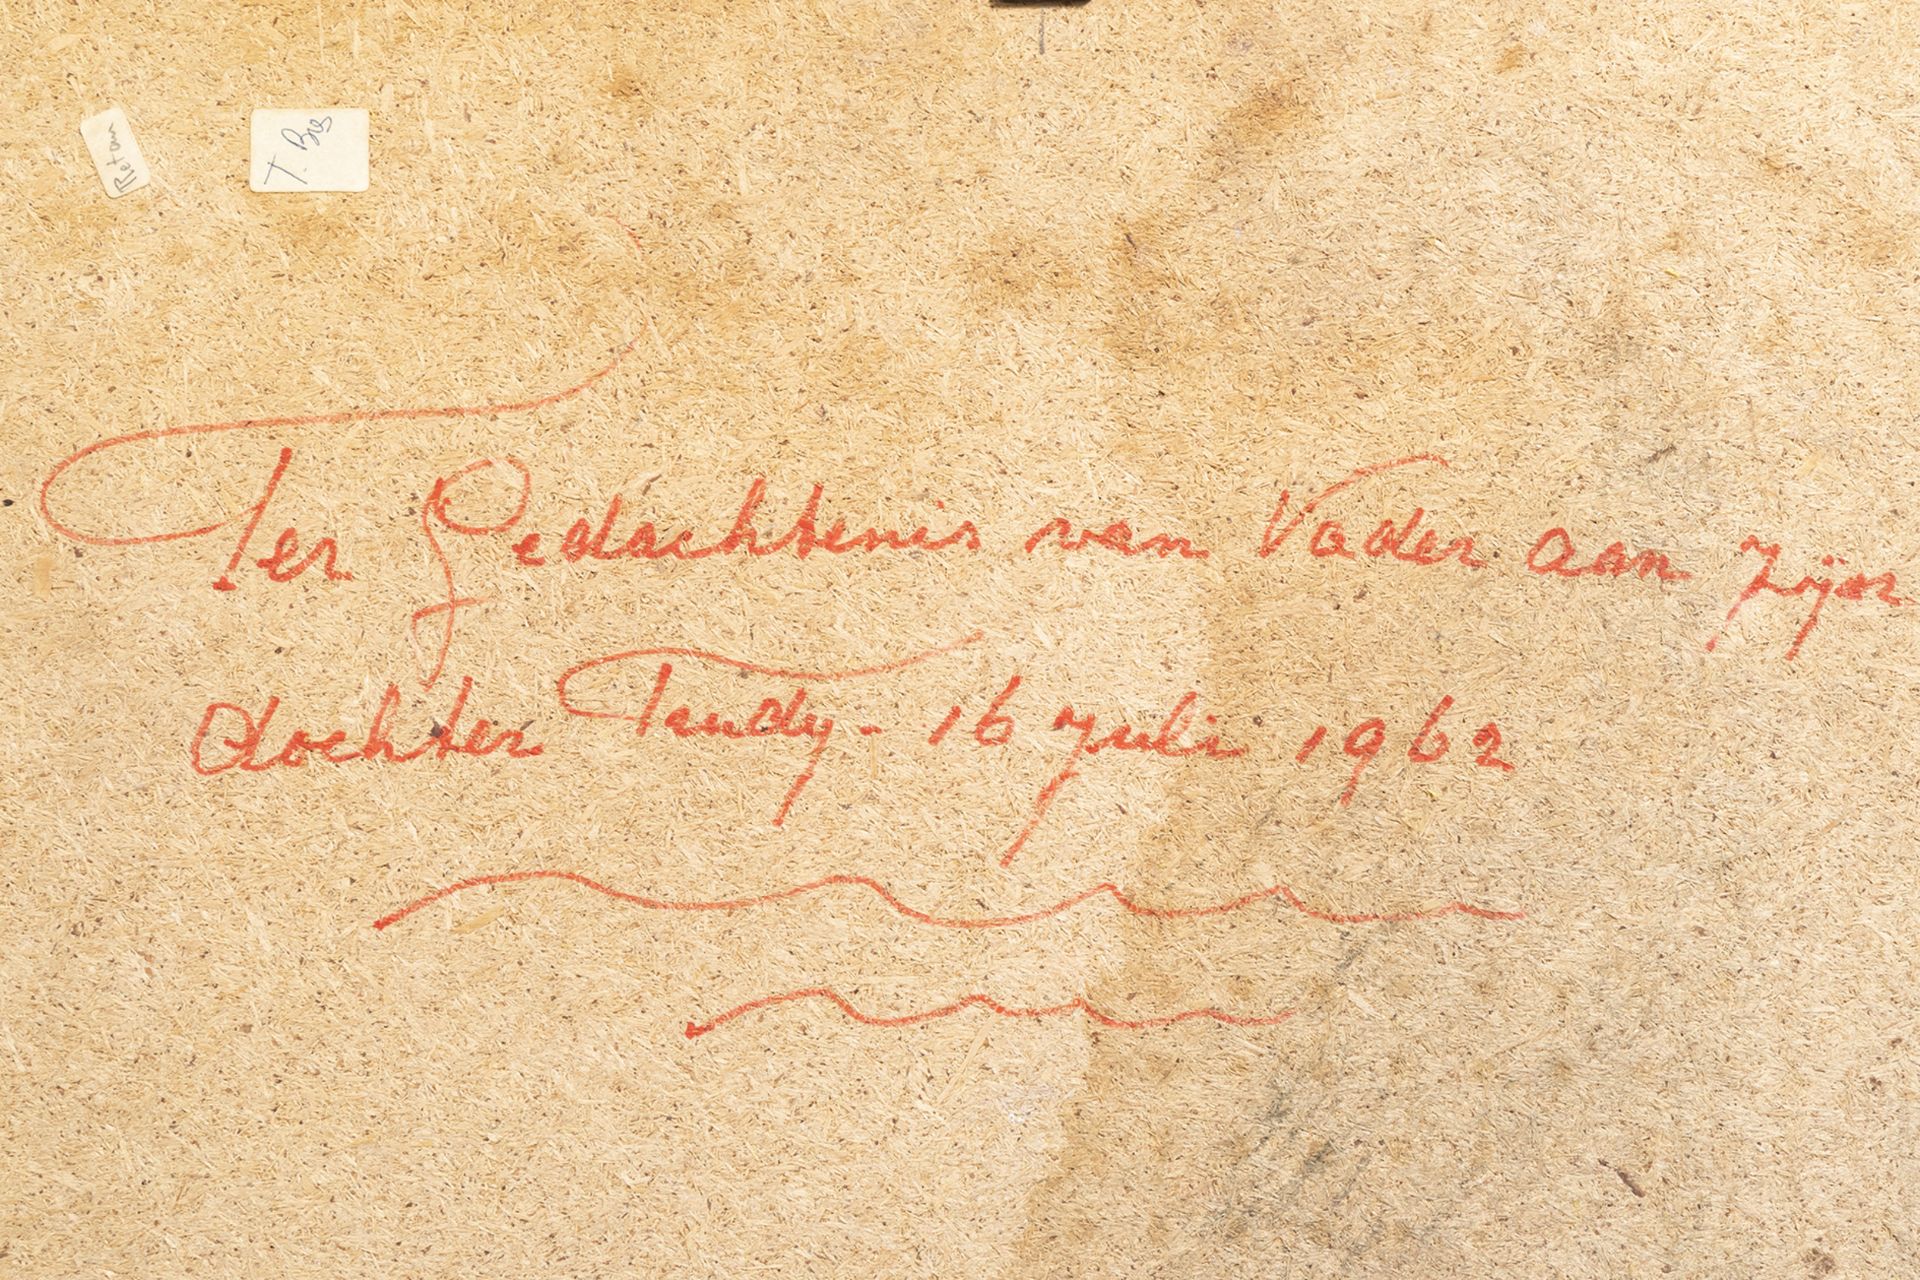 Retour
T. Bos
Ter Gedachtenis van Vader aan zijn
dochter Trudy - 16 juli 1962